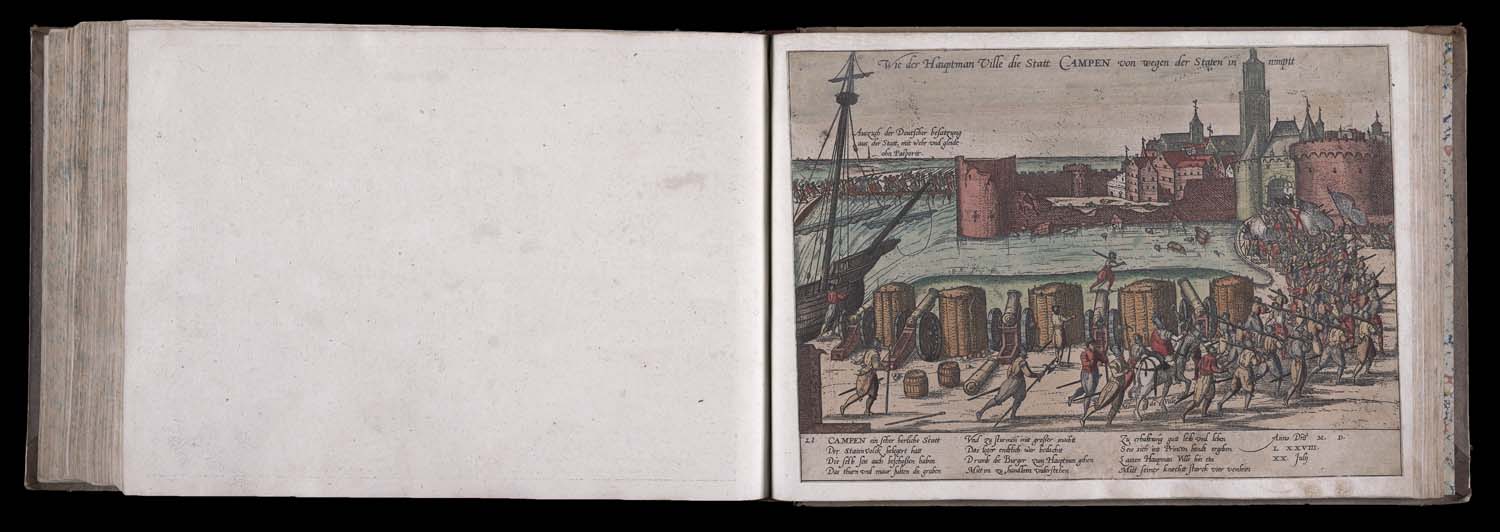 Wie der Hauptman Ville die Statt CAMPEN von wegen der Staten in nimptt
Auszug der Deutscher besatzung
aus der Statt, mit wehr und gleide
ohn Pasporte
LI
CAMPEN ein seher herliche Statt
Der Staten volck belegert hatt
Die selb sie auch beschossen haben
Das thurn und maur fielen in graben
Und zu sturmen mit grosser macht
Das leger endtlich war bedacht
Drumb die Burger zum Hauptman gehen
Mitt im zu handlem understehen
Zu erhaltung gutt leib und leben
Sein sich ins Printzen hendt ergeben
Lassen Haupman Ville hin ein
Mitt seiner knechtt starck vier venlein
Anno Dñi M. D.
L XXVIII.
XX July